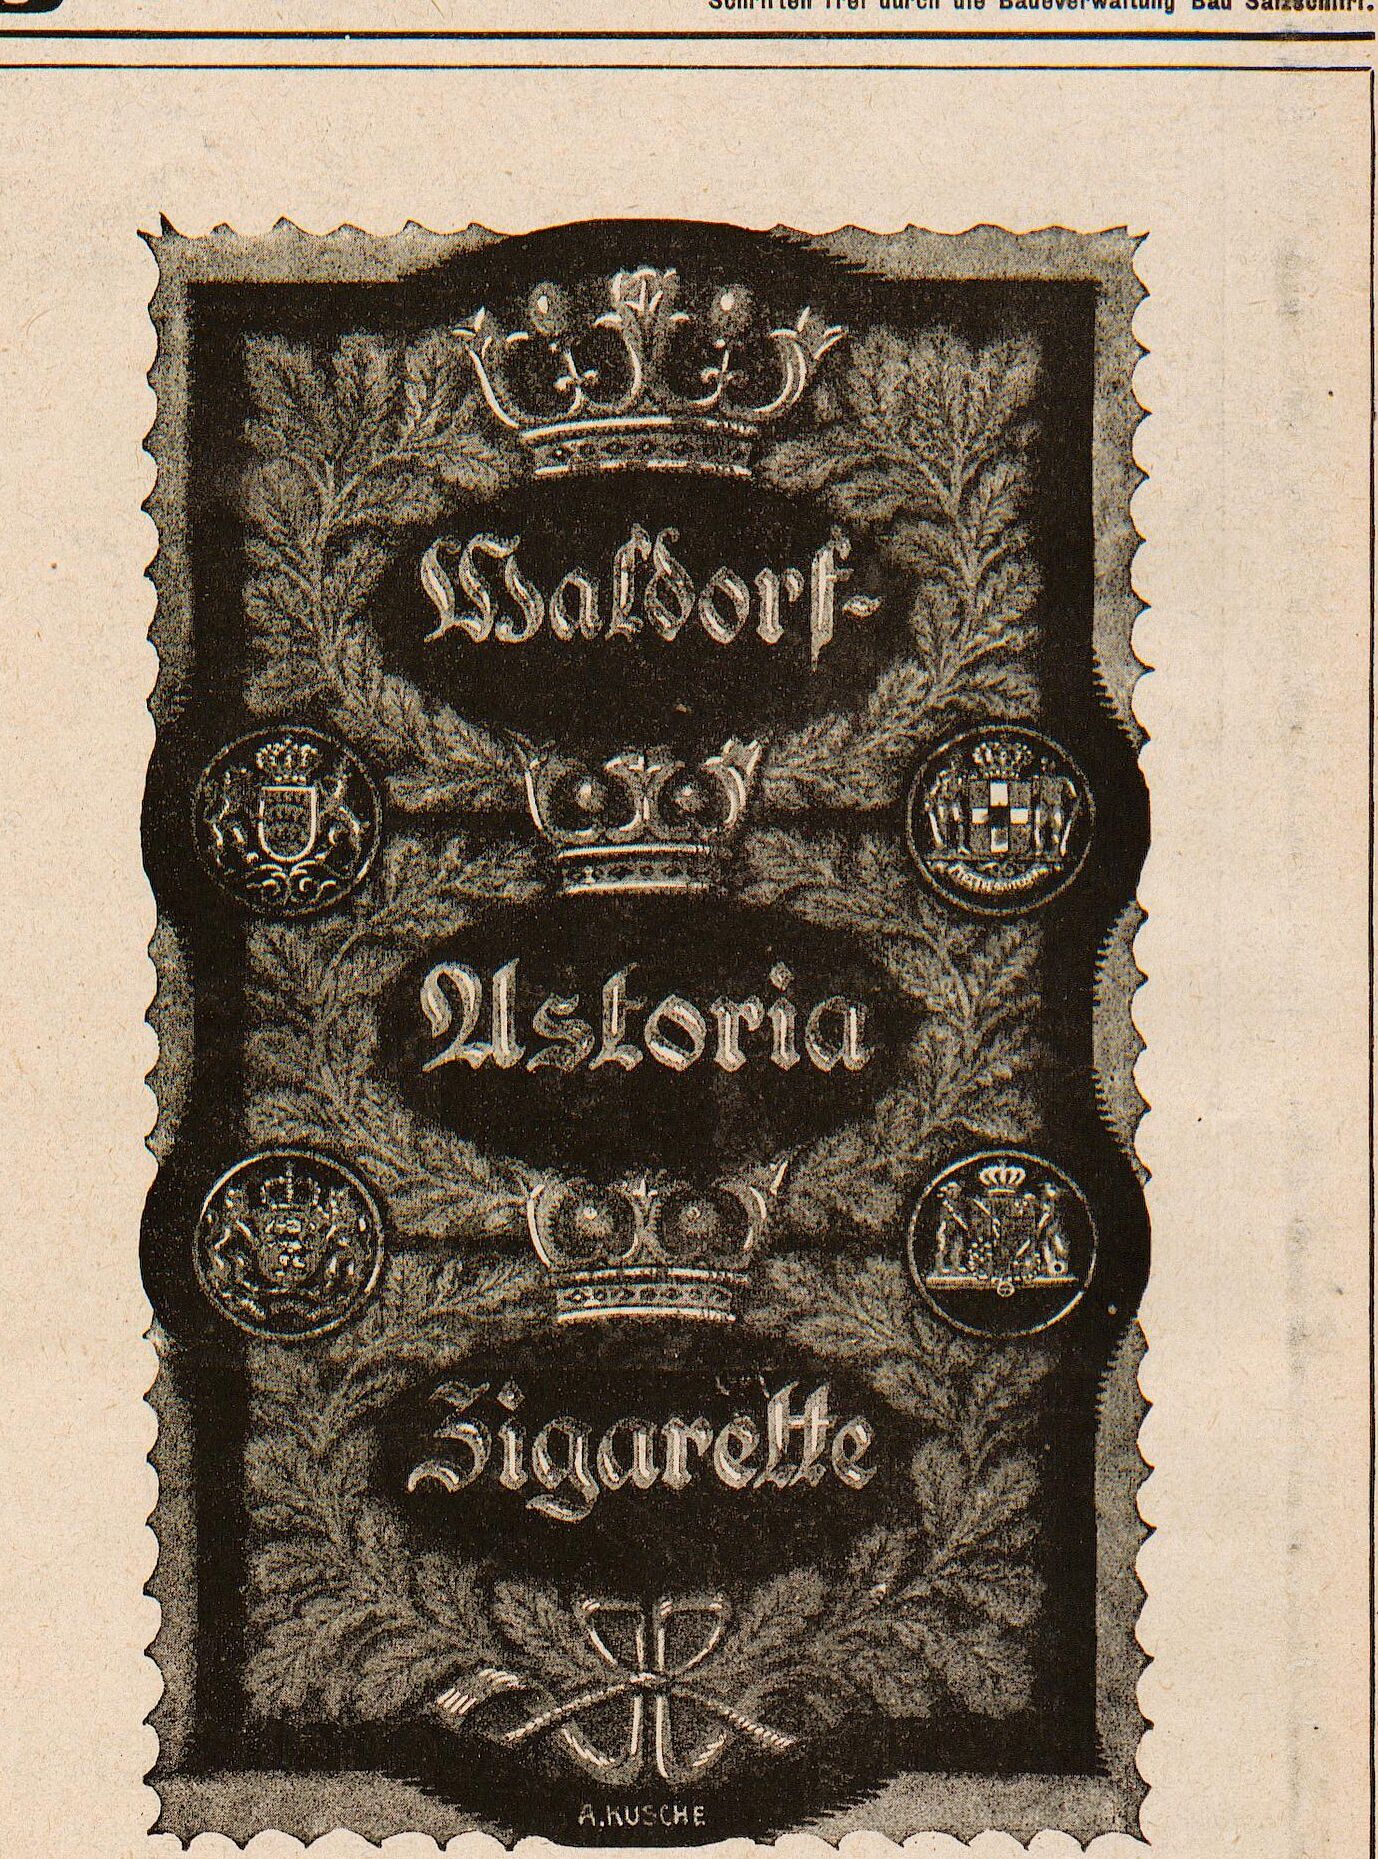 Schriften frei durch die Badeverwaltung Bad Salzschlirf.
Waldorf-
Astoria
Zigarette
A. KUSCHE